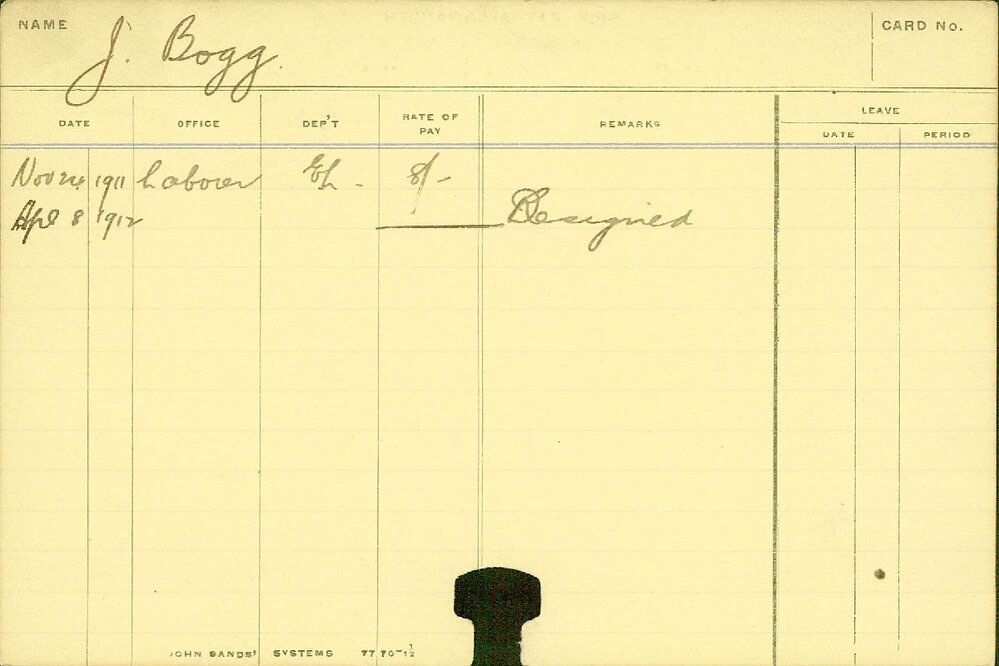 NAME J. Bogg. CARD No.
LEAVE
DATE OFFICE DEP'T RATE OF PAY REMARKS DATE PERIOD
Nov 24 1911 Laborer 8/-
Apl 8 1912 Resigned
JOHN SANDS' SYSTEMS